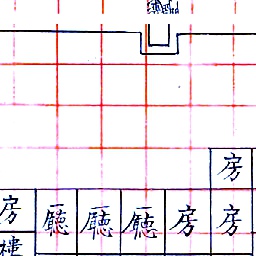 房
房廳廳廳房房